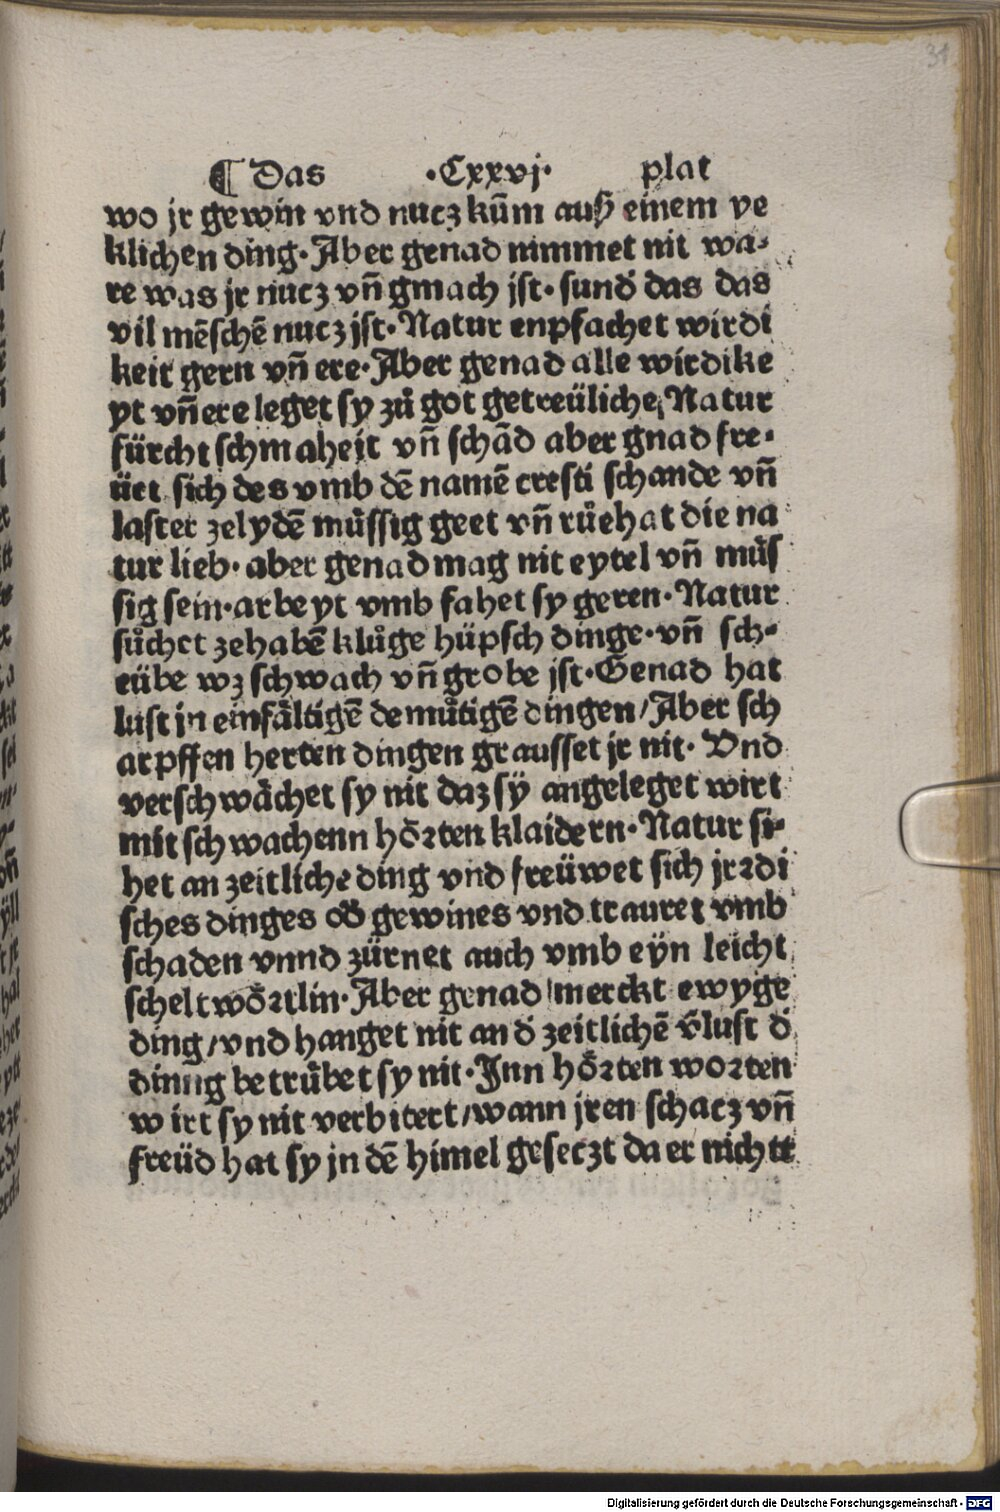 31
¶ Das ·Cxxvj· plat
wo jr gewin vnd nucz kūm auß einem ye
klichen ding· Aber genad nimmet nit wa⸗
re was jr nucz vn̄ gmach jst· sund̓ das das
vil mēschē nucz jst· Natur enpfachet wirdi
keit gern vn̄ ere· Aber genad alle wirdike
yt vn̄ ere leget sy zů got getreüliche, Natur
fürcht schmaheit vn̄ schād aber gnad fre⸗
üet sich des vmb dē namē cresti schande vn̄
laster zelydē mu̇ssig geet vn̄ růe hat die na
tur lieb· aber genad mag nit eytel vn̄ mu̇s
sig sein· arbeyt vmb fahet sy geren· Natur
sůchet ze habē klůge hüpsch dinge· vn̄ sch⸗
eübe wz schwach vn̄ grobe jst· Genad hat
lust jn einfältigē demůtigē dingen/ Aber sch
arpffen herten dingen grausset jr nit· Vnd
verschwächet sy nit daz sÿ angeleget wirt
mit schwachenn hörten klaidern· Natur si⸗
het an zeitliche ding vnd freüwet sich jrꝛdi
sches dinges od̓ gewines vnd trauret vmb
schaden vnnd zürnet auch vmb eÿn leicht
scheltwöꝛtlin· Aber genad merckt ewyge
ding/ vnd hanget nit an d̓ zeitlichē v̓lust d̓
dinng betrübet sy nit· Inn höꝛten woꝛten
wirt sy nit verbitert/ wann jren schacz vn̄
freüd hat sy jn dē himel gesetzt da er nichtt
Digitalisierung gefördert durch die Deutsche Forschungsgemeinschaft - DFG